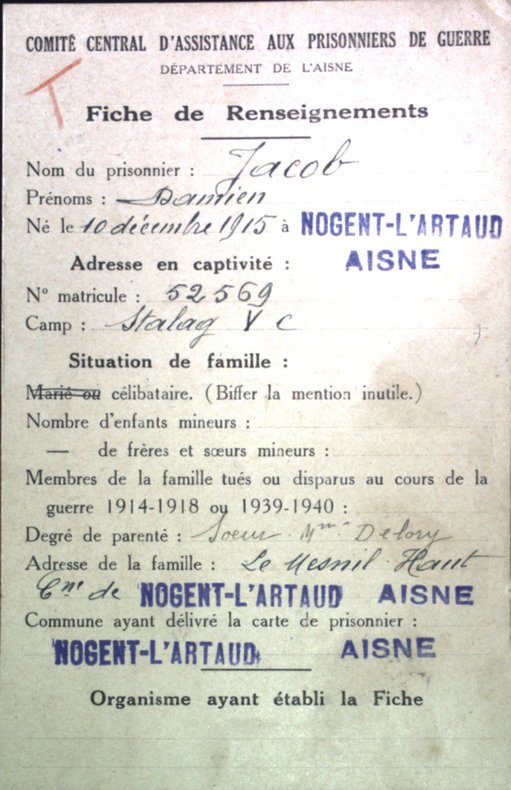 COMITÉ CENTRAL D'ASSISTANCE AUX PRISONNIERS DE GUERRE
DÉPARTEMENT DE L'AISNE
T
Fiche de Renseignements
Nom du prisonnier : Jacob
Prénoms : Damien
Né le 10 décembre 1915 à NOGENT-L'ARTAUD
AISNE
Adresse en captivité :
N° matricule : 52569
Camp : Stalag V C
Situation de famille :
Marié ou célibataire. (Biffer la mention inutile.)
Nombre d'enfants mineurs :
— de frères et sœurs mineurs :
Membres de la famille tués ou disparus au cours de la
guerre 1914-1918 ou 1939-1940 :
Degré de parenté : Soeur Mme Delory
Adresse de la famille : Le Mesnil Haut
Cne de NOGENT-L'ARTAUD AISNE
Commune ayant délivré la carte de prisonnier :
NOGENT-L'ARTAUD AISNE
Organisme ayant établi la Fiche